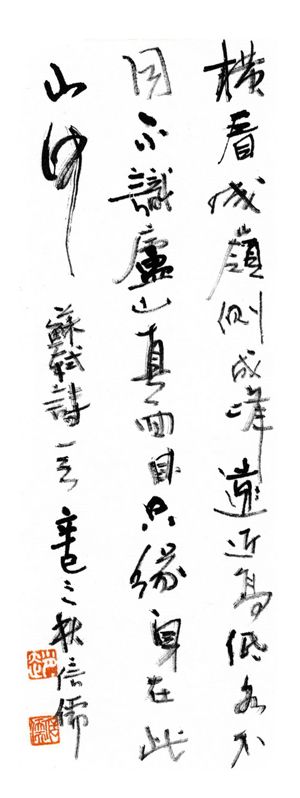 橫看成嶺側成峰遠近高低各不
同不識廬山真面目只緣身在此
山中 蘇軾詩一首 辛巳之秋信儒